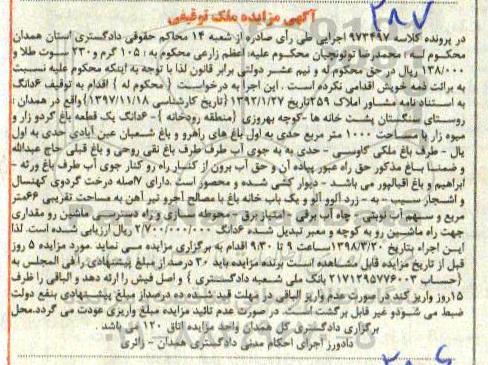 ۳۸۷
آگهی مزایده ملک توقیفی
در پرونده کلاسه ۹۷۳۴۹۷ اجرایی طی رای صادره از شعبه ۱۴ محاکم حقوقی دادگستری استان همدان
محکوم له : محمدرضا توتونچیان محکوم علیه: اعظم زارعی محکوم به : ۱۰۵ گرم و ۲۳۰ سوت طلا و
۱۳۸/۰۰۰ ریال در حق محکوم له و نیم عشر دولتی برابر قانون لذا با توجه به اینکه محکوم علیه نسبت
به برائت ذمه خویش اقدامی نکرده است . این اجرا به درخواست { محکوم له } اقدام به توقیف ۶دانگ
به استناد نامه مشاور املاک ۲۵۹تاریخ ۱۳۹۲/۱/۲۷ {تاریخ کارشناسی ۱۳۹۷/۱۱/۱۸} واقع در همدان :
روستای سنگستان پشت خانه ها -کوچه بهروزی {منطقه رودخانه} - ۶دانگ یک قطعه باغ گردو زار و
میوه زار با مساحت ۱۰۰۰ متر مربع حدی به اول باغ های راهرو و باغ شعبان عین آبادی حدی به اول
یال - طرف باغ ملکی کاوسی - حدی به به جوی آب طرف طرف باغ نقی روحی و باغ قبلی حاج عبدالله
و ضمنا باغ مذکور حق راه عبور پیاده آن و حق آب برون از کنار راه رو کنار جوی آب طرف باغ ورثه -
ابراهیم و باغ اقبالپور می باشد - دیوار کشی شده و محصور است .دارای ۷اصله درخت گردوی کهنسال
و اشجار سیب - به - زرد آلوو آلو و یک باب خانه باغ با مصالح آجرو تیر آهن به مساحت تقریبی ۶۶متر
مربع و سهم آب نوبتی - چاه آب برقی - امتیاز برق - محوطه سازی و راه دسترسی ماشین رو مقداری
جهت راه ماشین رو به کوچه و معبر تبدیل شده ۶دانگ ۲/۷۰۰/۰۰۰/۰۰۰ ریال ارزیابی شده است. لذا
این اجراء بتاریخ ۱۳۹۸/۳/۲۰ساعت ۹ تا ۹:۳۰ اقدام به برگزاری مزایده می نماید .مورد مزایده ۵ روز
قبل از تاریخ مزایده قابل مشاهده است برنده مزایده باید ۲۰ درصد از مبلغ پیشنهادی را فی المجلس به
{حساب ۲۱۷۱۲۹۵۷۷۶۰۰۳ بانک ملی شعبه دادگستری } و اصل فیش را ارئه دهد و الباقی را ظرف
۱۵روز واریز کند در صورت عدم واریز الباقی در مهلت قید شده ده درصداز مبلغ پیشنهادی بنفع دولت
ضبط می شودو غیر قابل برگشت است. در صورت عدم تائید مزایده مبلغ واریزی عودت می گردد.محل
برگزاری دادگستری کل همدان واحد مزایده اتاق ۱۲۰ می باشد .
دادورز اجرای احکام مدنی دادگستری همدان - زائری